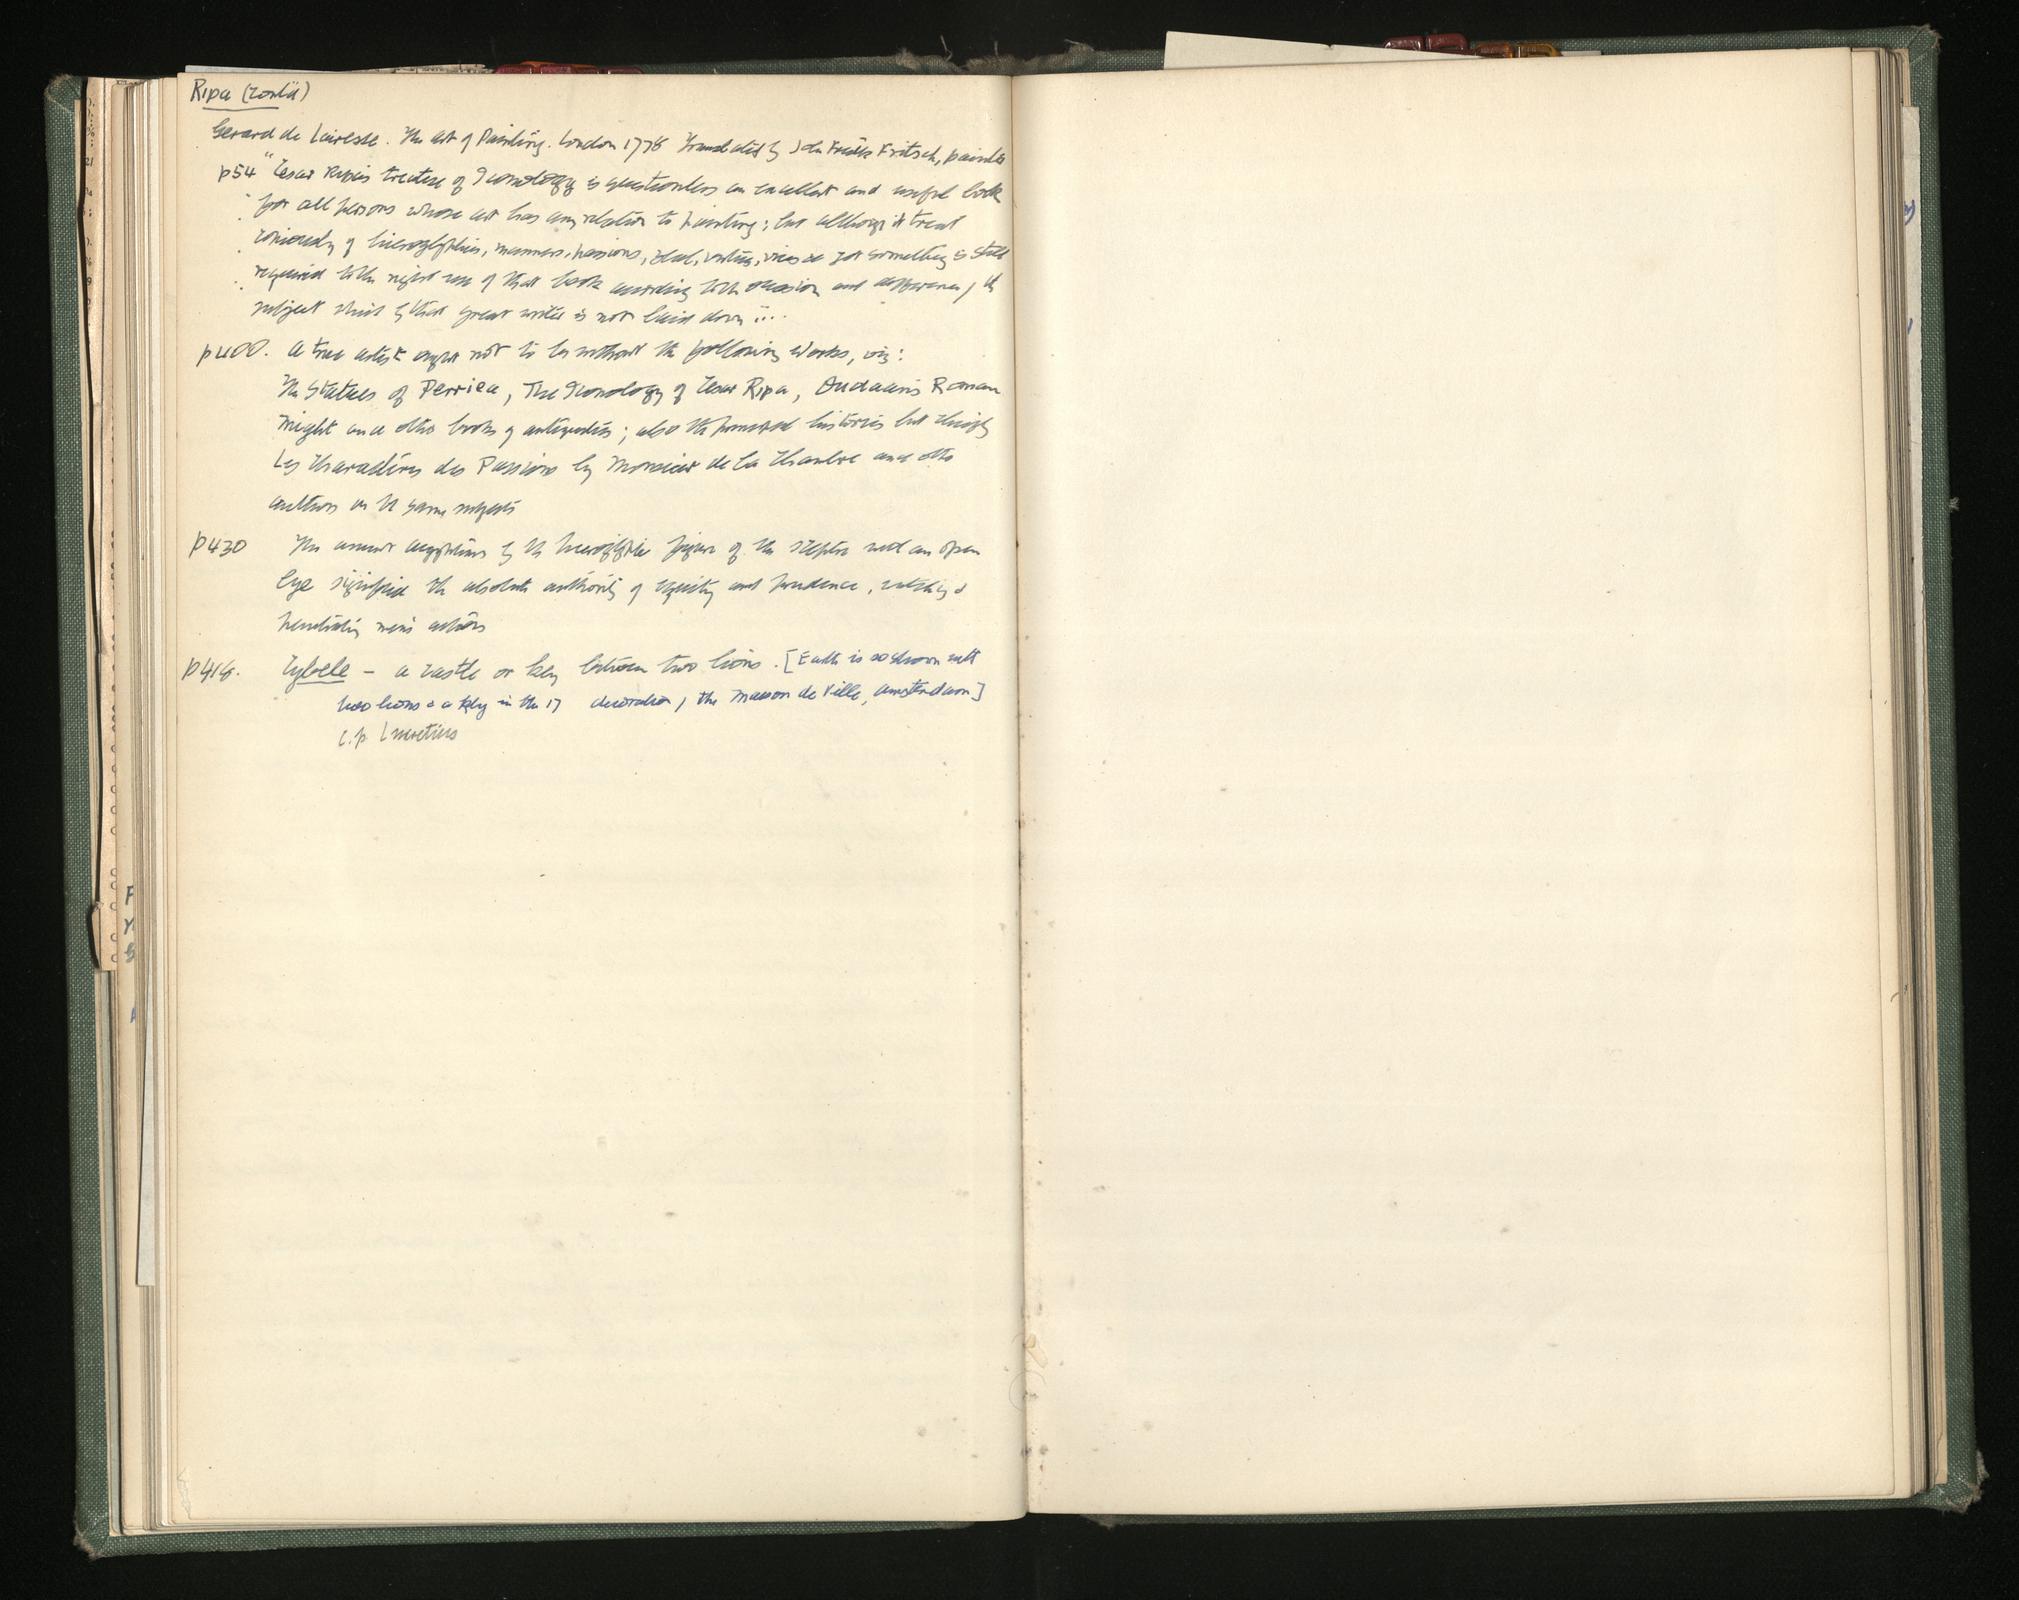 Ripa (cont'd)
Gerard de Lairesse. The Art of Painting. London 1778 Translated by John Fredk Fritsch, painter
p54 "Cesar Ripa's treatise of Iconology is questionless an excellent and useful book
for all persons whose art has any relation to painting; but although it treat
copiously of hieroglyphics, manners, passions, zeal, virtues, vices &c yet something is still
required to the right use of that book according to the occasion and difference of the
subject which by that great writer is not laid down ...
p400. A true artist ought not to be without the following works, viz:
The Statues of Perrier, The Iconology of Cesar Ripa, Oudaan's Roman
Might and other books of antiquities; also the principal histories but chiefly
Les Charactères des Passions by Monsieur de la Chambre and other
authors on the same subjects
p430 The ancient Aegyptians by the hieroglyphic figure of the sceptre with an open
Eye signified the absolute authority of equity and prudence, watching &
penetrating men's actions
p416. Cybele - a castle or key between two lions. [Earth is so shown with
two lions & a key in the 17 decoration of the Maison de Ville, Amsterdam]
c.p. Lucretius